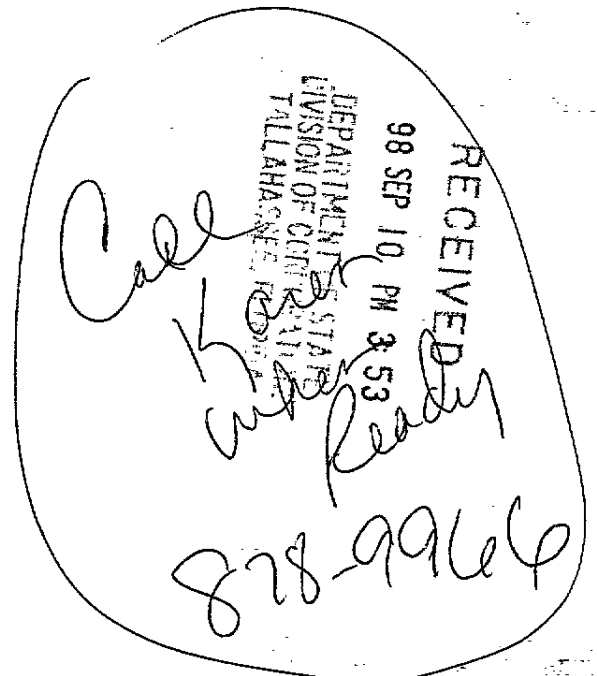 RECEIVED
98 SEP 10 PM 3:53
DEPARTMENT OF STATE
DIVISION OF CORPORATIONS
TALLAHASSEE, FLORIDA
Call
Karen
when
Ready
878-9966